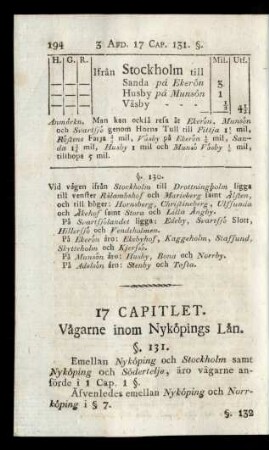 194 3 Afd. 17 Cap. 131. §.
H. G. R. Ifrån Stockholm till Mil. Utf.
Sanda på Ekerön 3
Husby på Munsön 1
Väsby - - - ½ 4½
Anmärkn. Man kan ockſå reſa åt Ekerön, Munsön
och Svartſjö genom Horns Tull till Fittja 1½ mil,
tilihops 5 mil.
§. 130.
Vid vägen ifrån Stockholm till Drottningholm ligga
till venſter Rålambshof och Marieberg ſamt Ålſten,
och till höger: Hornsberg, Chriſtineberg, Ulfſunda
och Åkeshof ſamt Stora och Lilla Ängby.
På Svartſjölandet ligga: Edeby, Svartſjö Slott,
Hillerſjö och Vendelsholmen.
På Ekerön äro: Ekebyhof, Kaggeholm, Stafſund,
Skytteholm och Kjerſöe.
På Munsön äro: Husby, Bona och Norrby.
På Adelsön äro: Stenby och Tofta.
17 CAPITLET.
Vägarne inom Nyköpings Län.
§. 131.
Emellan Nyköping och Stockholm samt
Nyköping och Södertelje, äro vägarne an-
förde i 1 Cap. 1 §.
Äfvenledes emellan Nyköping och Norr-
köping i § 7.
§. 132